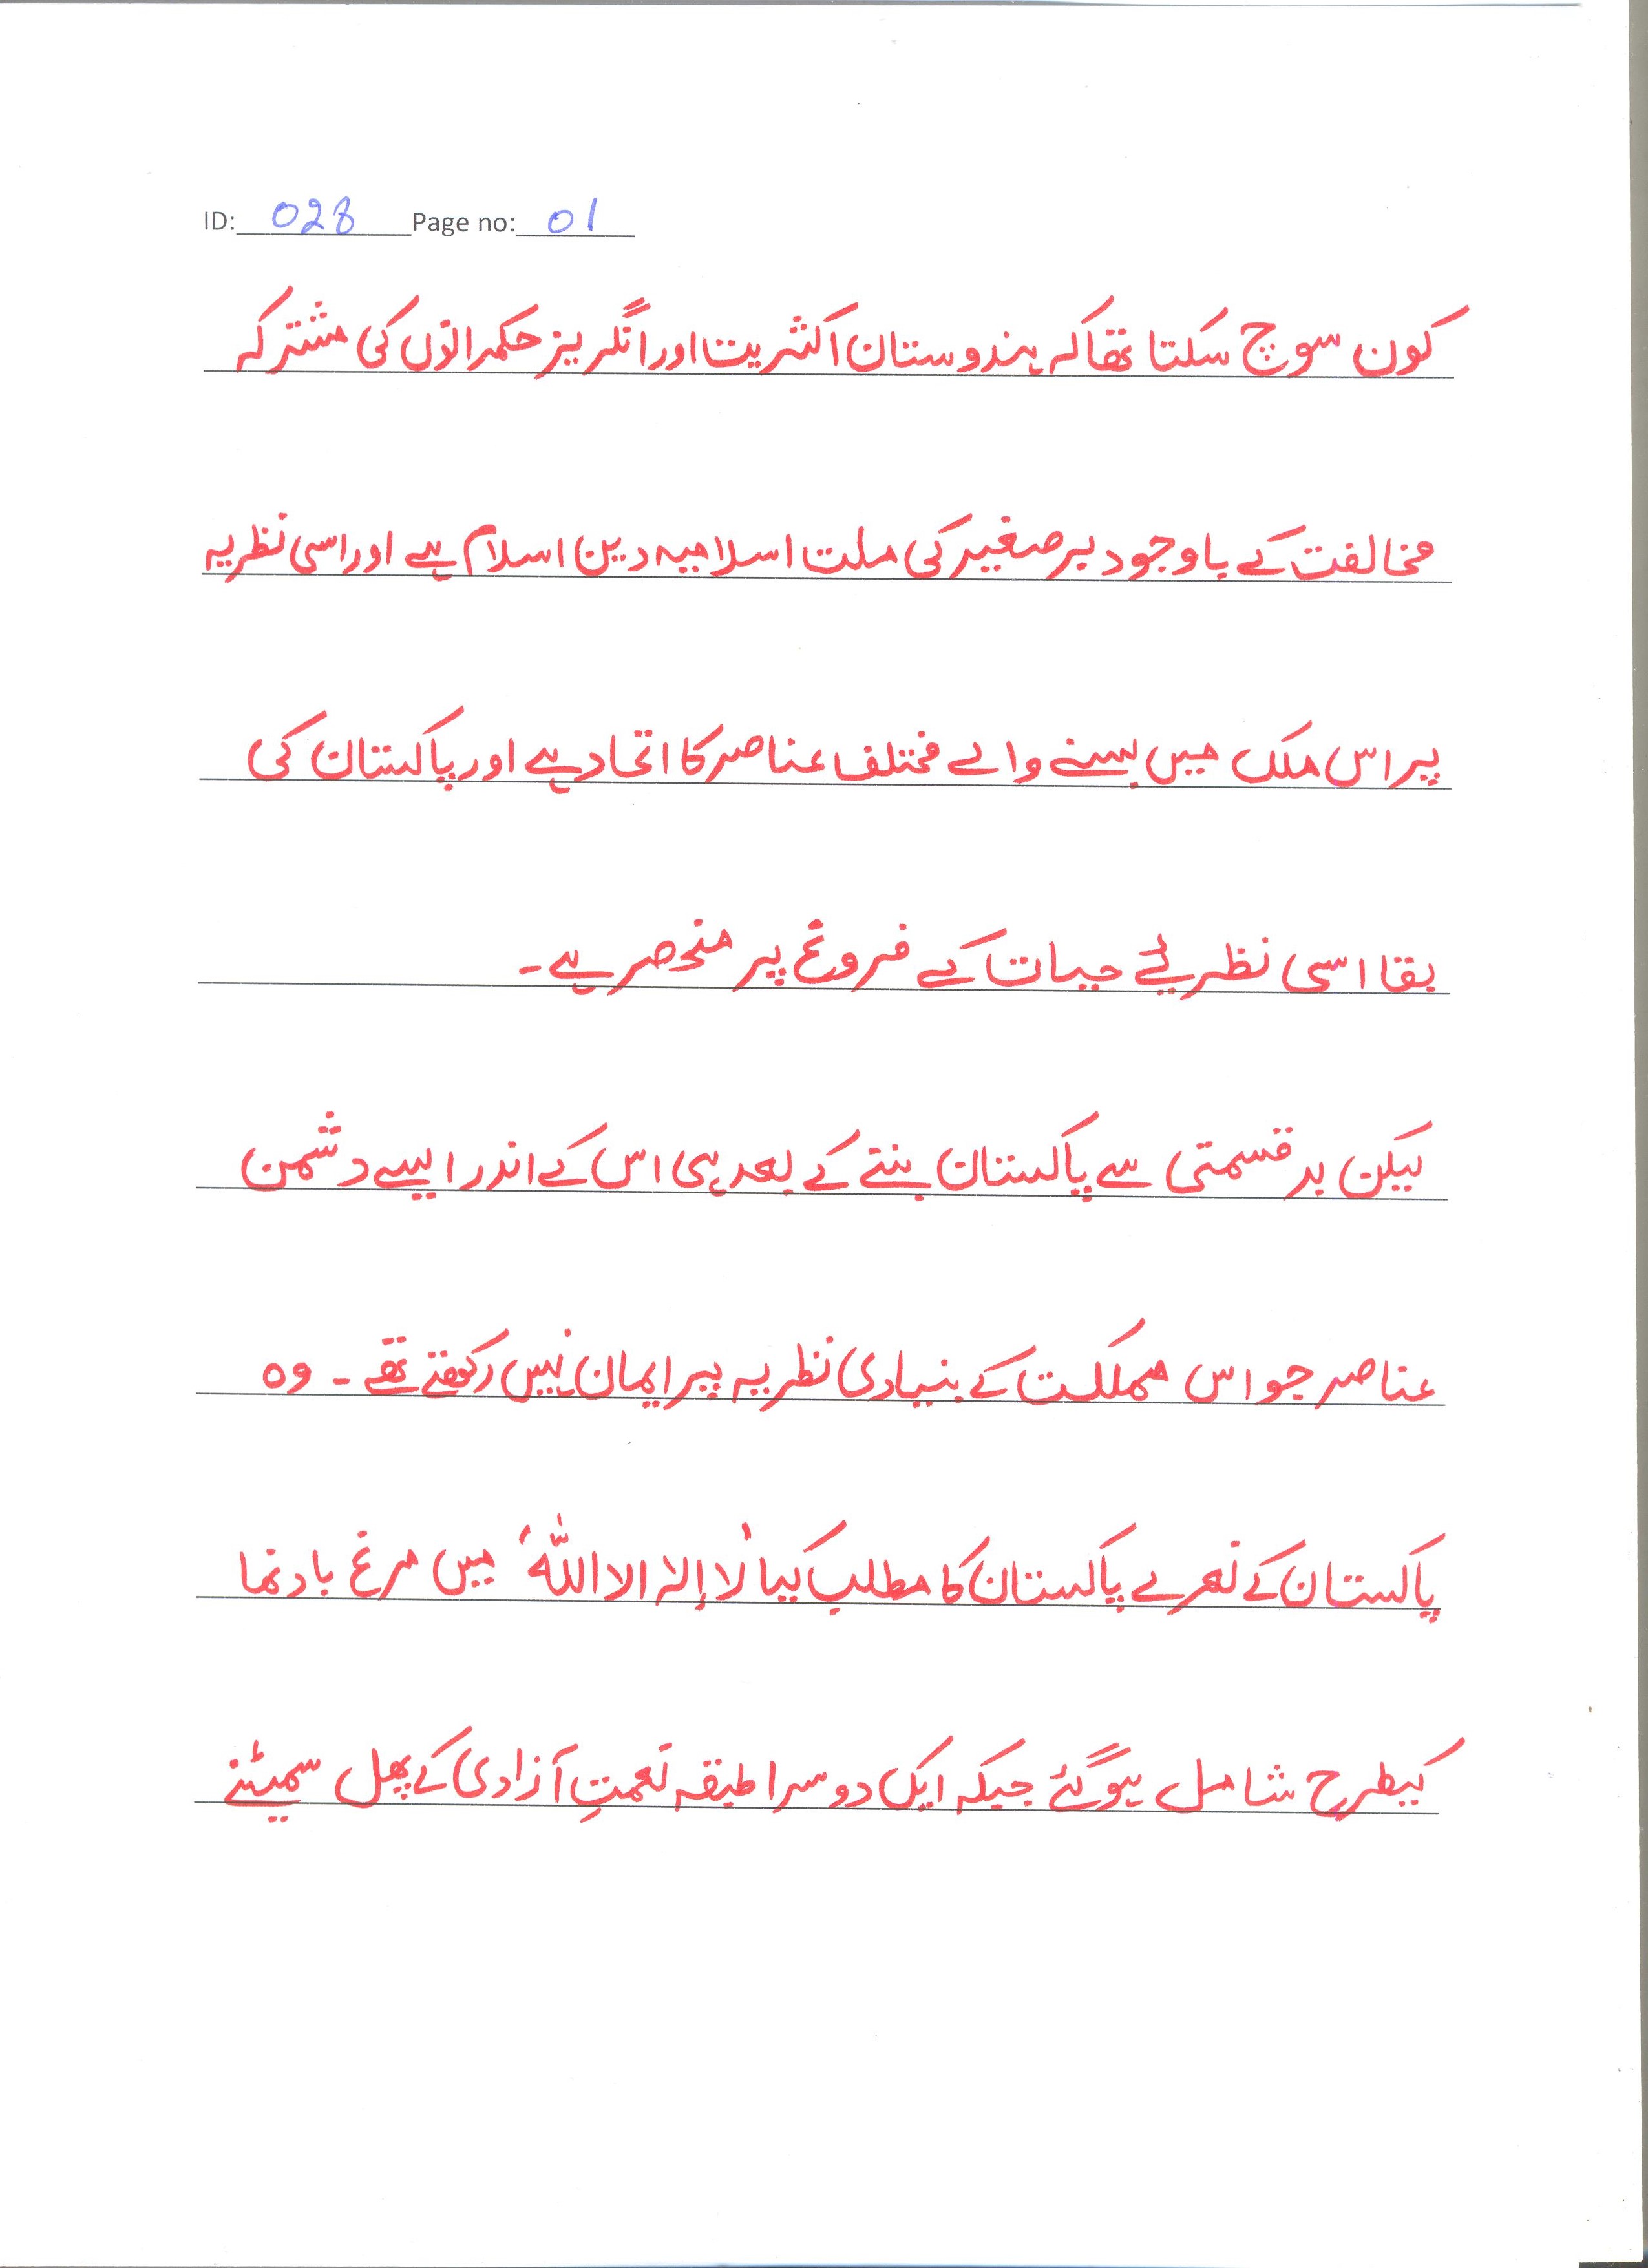 ID: 028 Page no: 01
کون سوچ سکتا تھا کہ ہندوستان اکثریت اور انگریز حکمرانوں کی مشترکہ
مخالفت کے باوجود برصغیر کی ملت اسلامیہ دین اسلام ہے اور اسی نظریہ
پر اس ملک میں بسنے والے مختلف عناصر کا اتحاد ہے اور پاکستان کی
بقا اسی نظریۓ حیات کے فروغ پر منحصر ہے۔
لیکن بدقسمتی سے پاکستان بنتے کے بعد ہی اس کے اندر ایسے دشمن
عناصر جو اس مملکت کے بنیادی نظریہ پر ایمان نہیں رکھتے تھے۔ وہ
پاکستان کے نعرے پاکستان کا مطلب کیا ’لا إلہ الا اللہ‘ میں مرغ بادنما
کیطرح شامل ہوگئے جبکہ ایک دوسرا طبقہ نعمتِ آزادی کے پھل سمیٹنے